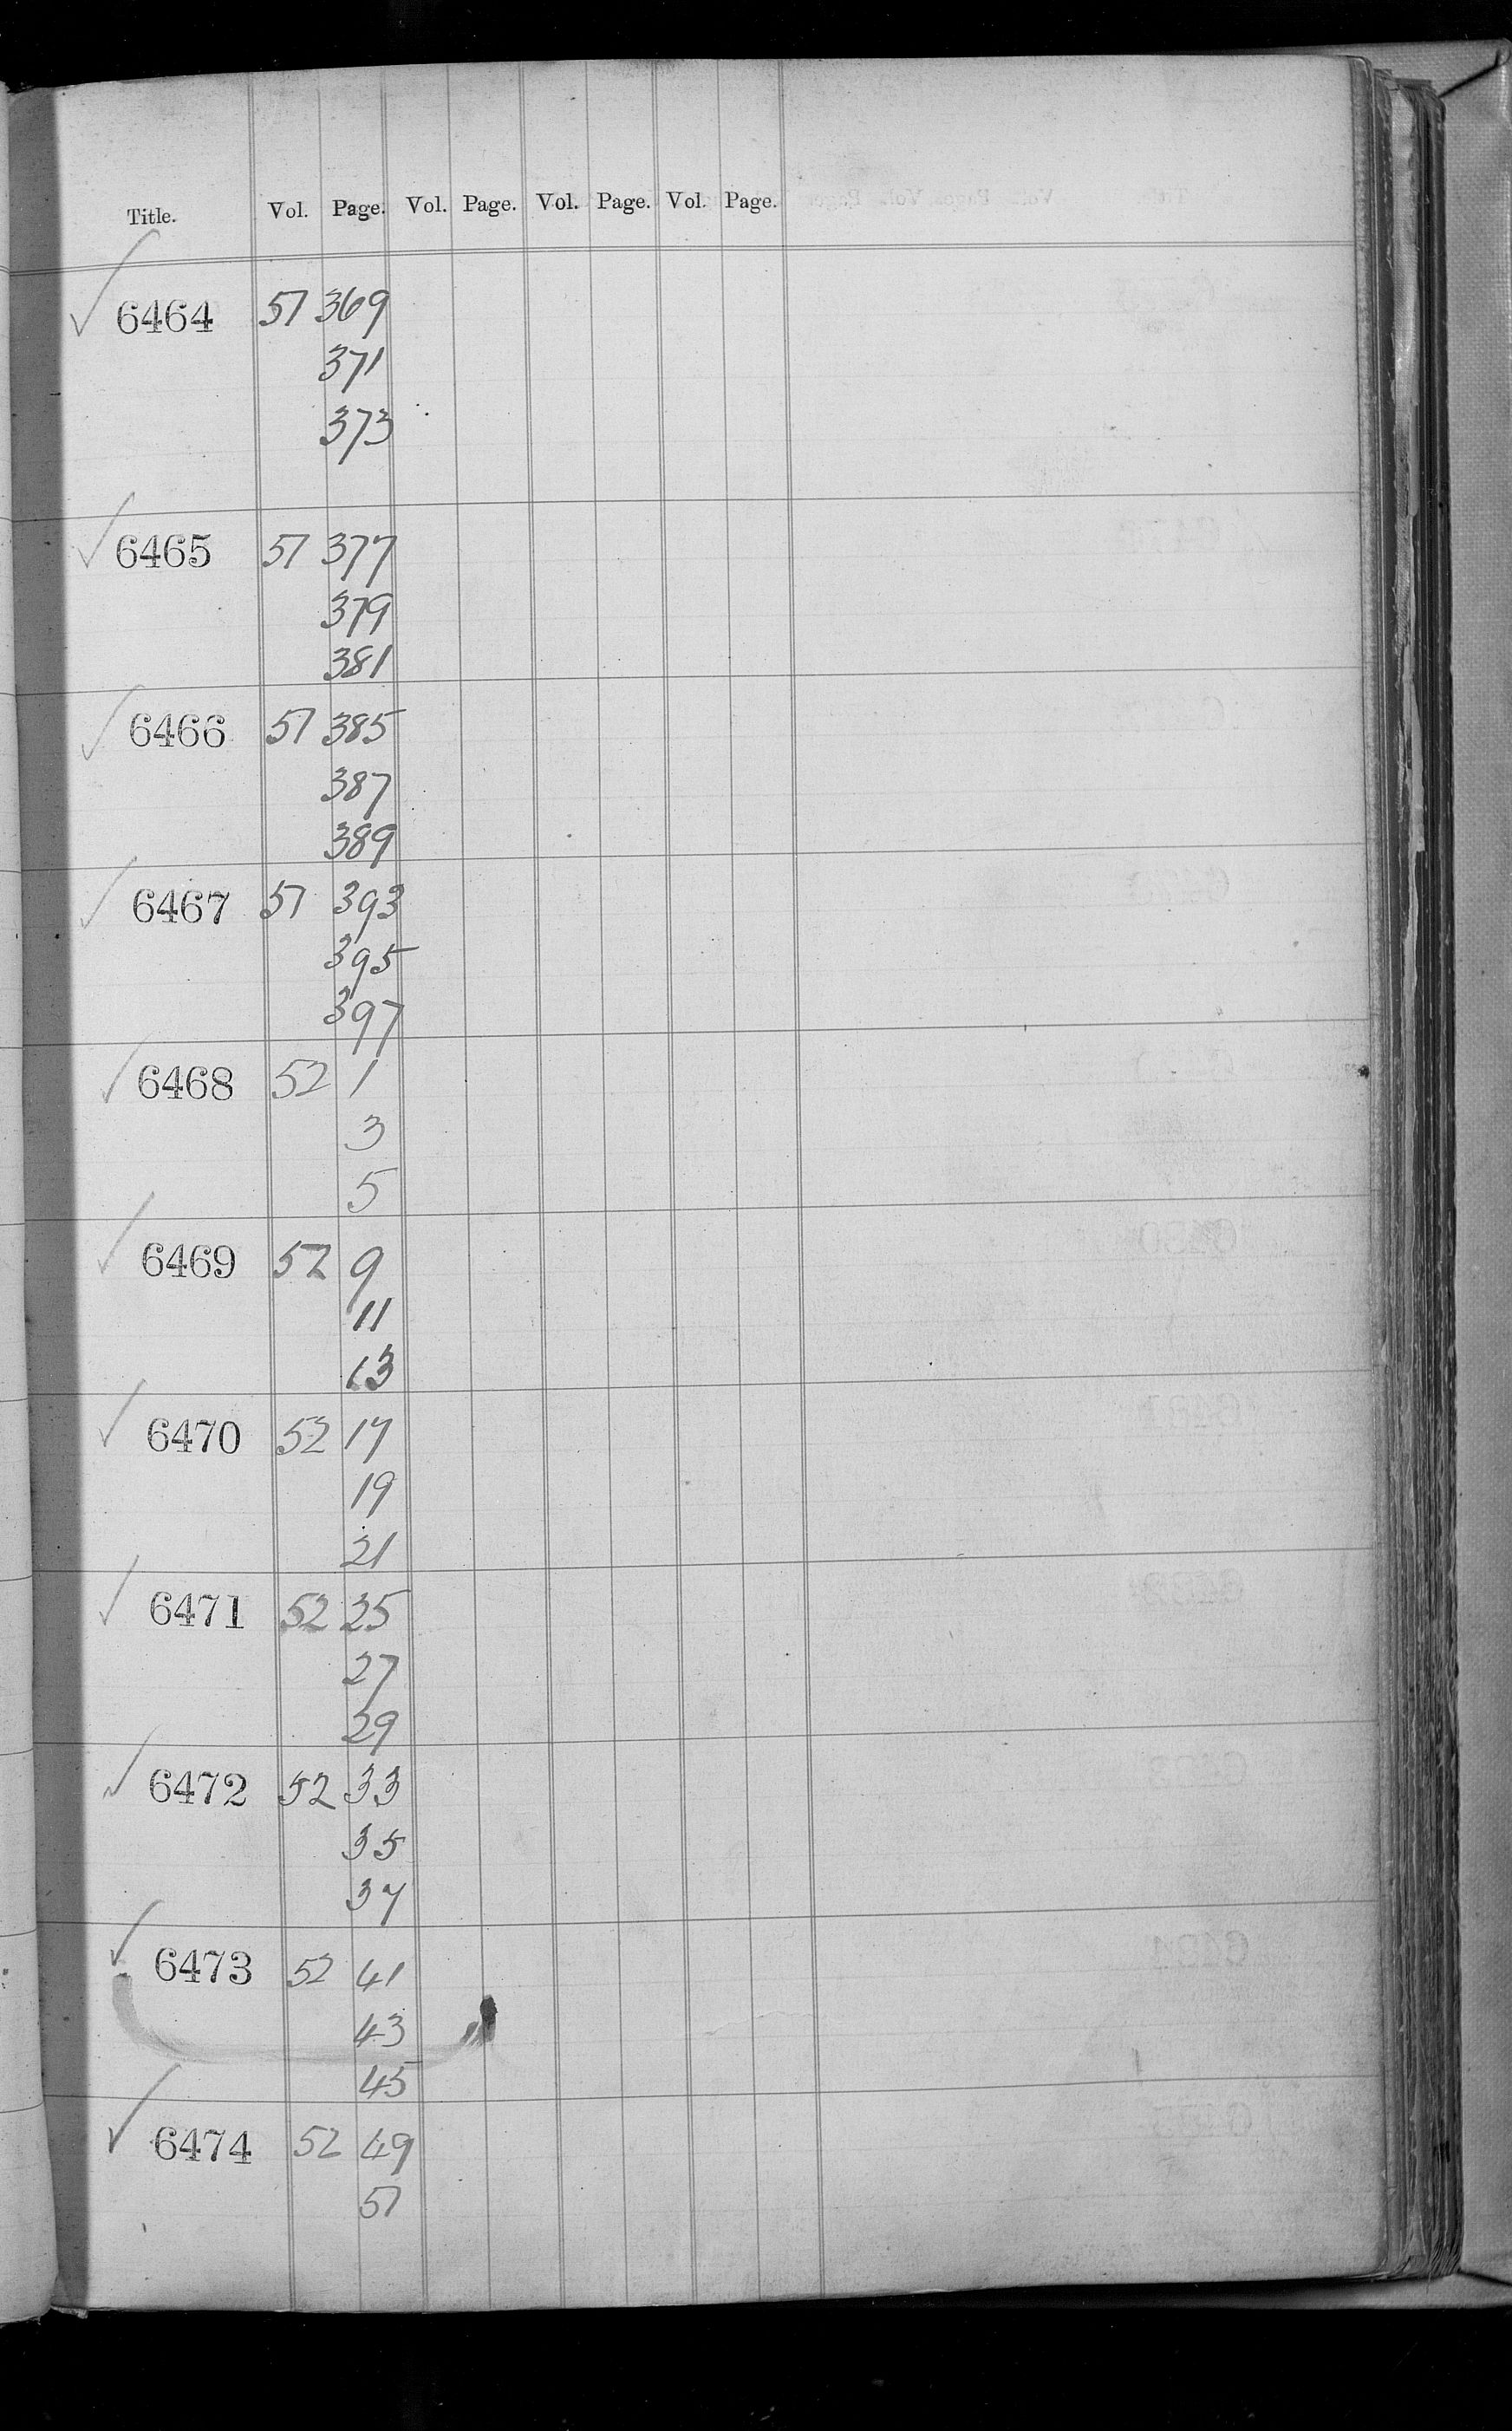 Title. Vol. Page. Vol. Page. Vol. Page. Vol. Page.
✓ 6464 51 369
371
373
✓ 6465 51 377
379
381
✓ 6466 51 385
387
389
✓ 6467 51 393
395
397
✓ 6468 52 1
3
5
✓ 6469 52 9
11
13
✓ 6470 52 17
19
21
✓ 6471 52 25
27
29
✓ 6472 52 33
35
37
✓ 6473 52 41
43
45
✓ 6474 52 49
51